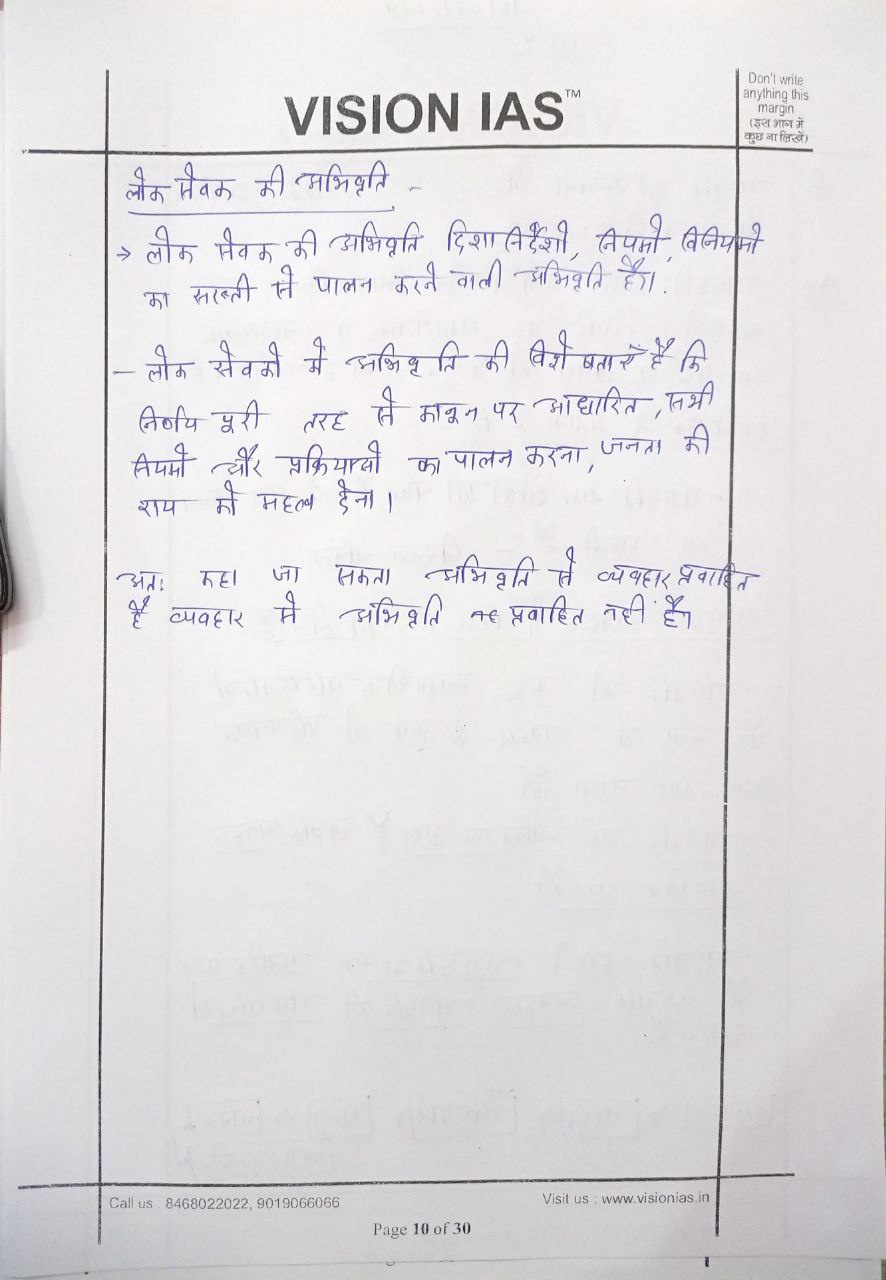 VISION IAS™
Don't write
anything this
margin
(इस भाग में
कुछ ना लिखें)
लोक सेवक की अभिवृति -
→ लोक सेवक की अभिवृति दिशा निर्देशो, नियमो, विनियमो
का सख्ती से पालन करने वाली अभिवृति है।
- लोक सेवको में अभिवृति की विशेषताएँ है कि
निर्णय पूरी तरह से कानून पर आधारित, सभी
नियमो और प्रक्रियाओ का पालन करना, जनता की
राय को महत्व देना।
अतः कहा जा सकता अभिवृति से व्यवहार प्रवाहित
है व्यवहार से अभिवृति प्रवाहित नही है।
Call us : 8468022022, 9019066066
Visit us : www.visionias.in
Page 10 of 30